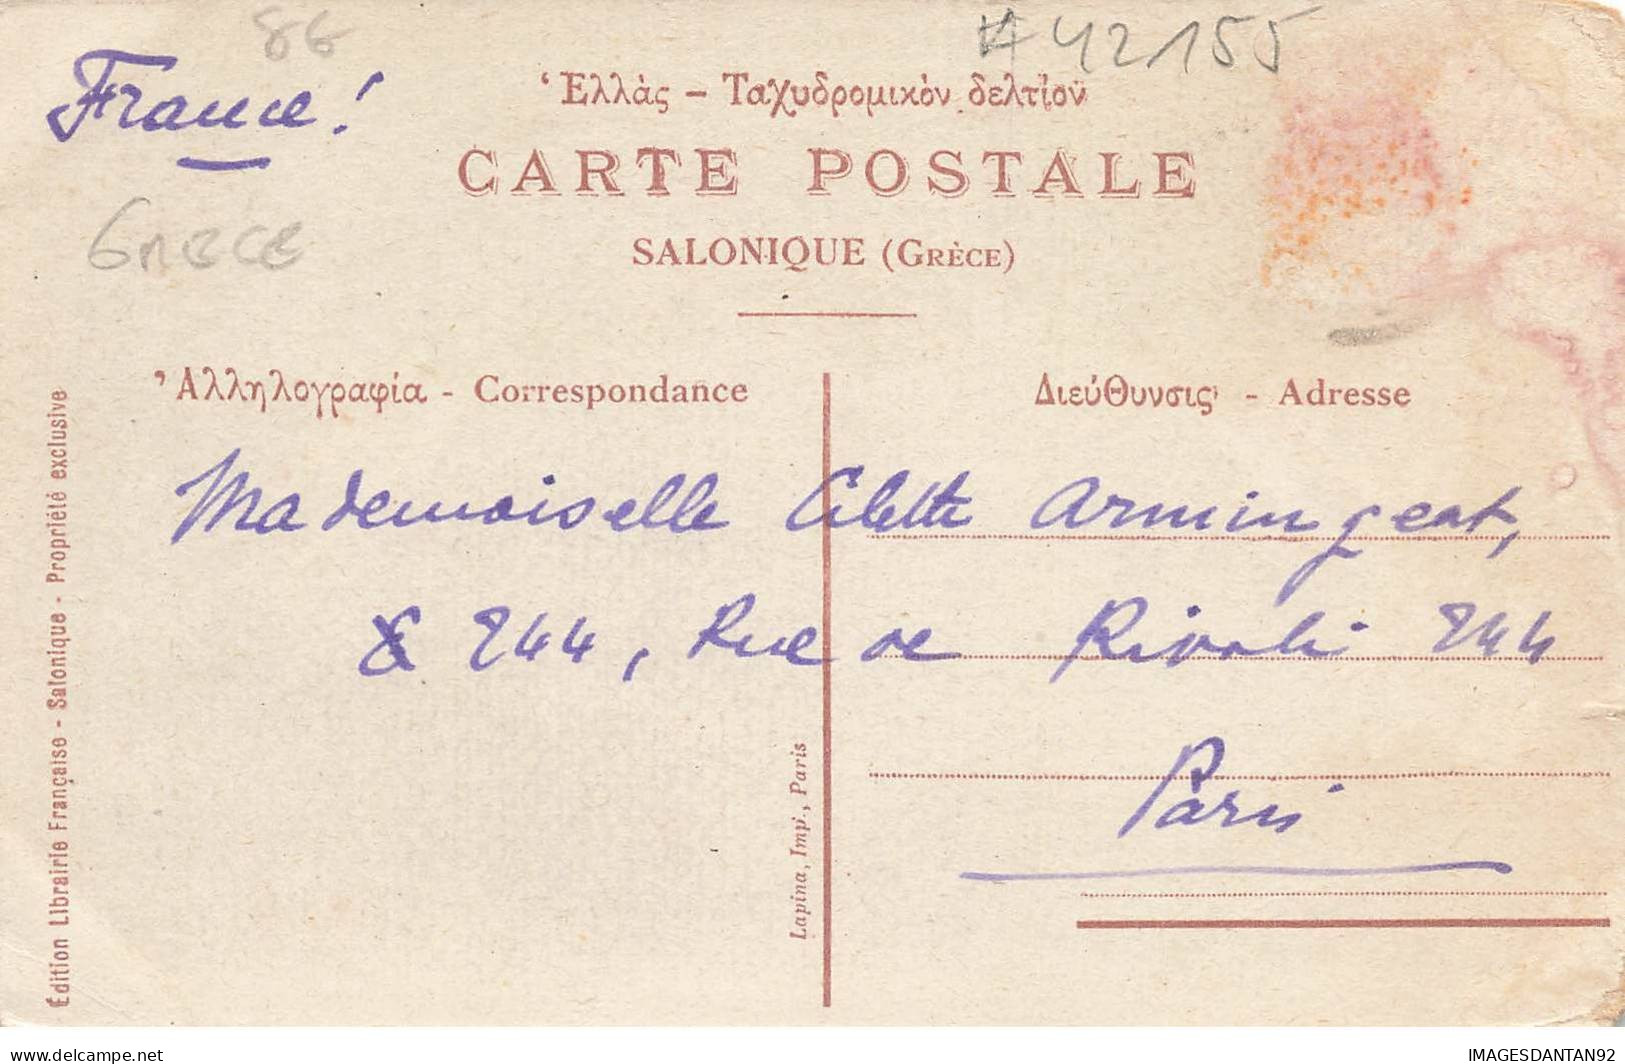 86
# 42155
France !
Ἑλλὰς - Ταχυδρομικὸν δελτίον
CARTE POSTALE
GRECE
SALONIQUE (GRÈCE)
Ἀλληλογραφία - Correspondance
Διεύθυνσις - Adresse
Mademoiselle Colette Armingeat,
244, Rue de Rivoli 244
Paris
Édition Librairie Française - Salonique - Propriété exclusive
Lapina, Imp., Paris
delcampe.net
IMAGESDANTAN92